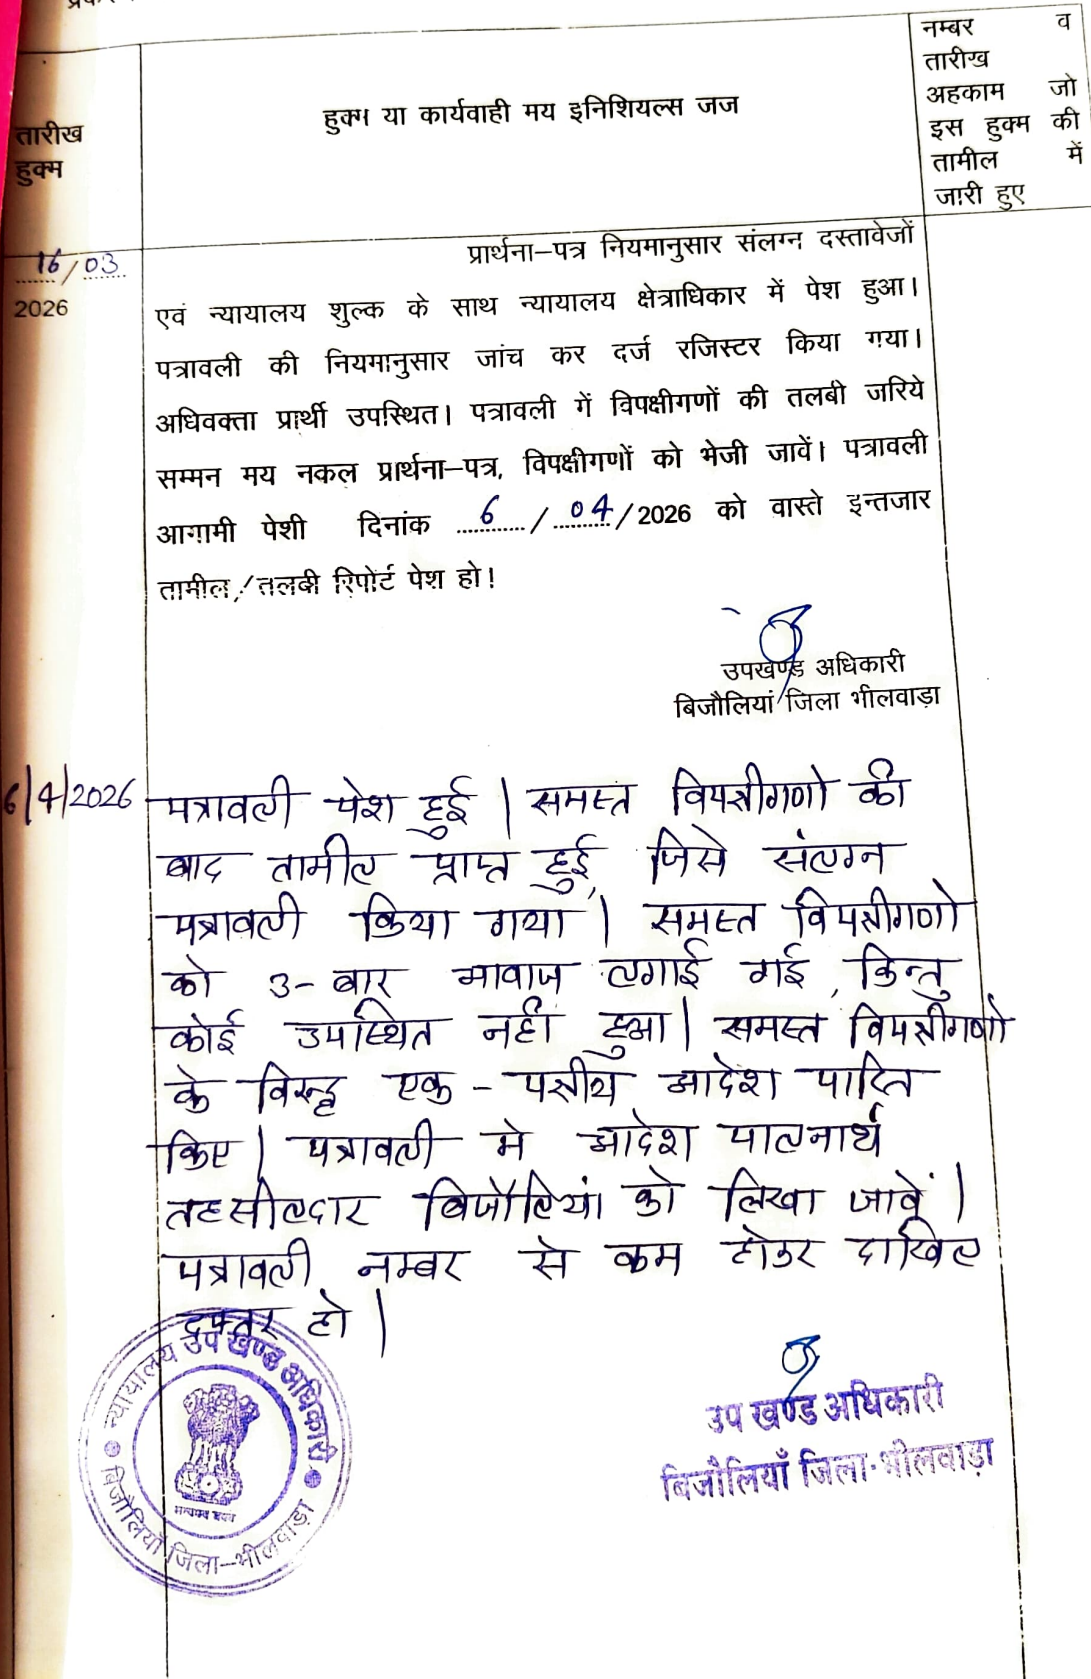 तारीख
हुक्म
हुक्म या कार्यवाही मय इनिशियल्स जज
नम्बर व
तारीख
अहकाम जो
इस हुक्म की
तामील में
जारी हुए
16/03
2026
प्रार्थना–पत्र नियमानुसार संलग्न दस्तावेजों
एवं न्यायालय शुल्क के साथ न्यायालय क्षेत्राधिकार में पेश हुआ।
पत्रावली की नियमानुसार जांच कर दर्ज रजिस्टर किया गया।
अधिवक्ता प्रार्थी उपस्थित। पत्रावली में विपक्षीगणों की तलबी जरिये
सम्मन मय नकल प्रार्थना–पत्र, विपक्षीगणों को भेजी जावें। पत्रावली
आगामी पेशी दिनांक 6/04/2026 को वास्ते इन्तजार
तामील/तलबी रिपोर्ट पेश हो!
उपखण्ड अधिकारी
बिजौलियां जिला भीलवाड़ा
6/4/2026
पत्रावली पेश हुई। समस्त विपक्षीगणो की
बाद तामील प्राप्त हुई, जिसे संलग्न
पत्रावली किया गया। समस्त विपक्षीगणो
को 3-बार आवाज लगाई गई, किन्तु
कोई उपस्थित नही हुआ। समस्त विपक्षीगणो
के विरुद्ध एक-पक्षीय आदेश पारित
किए। पत्रावली मे आदेश पालनार्थ
तहसीलदार बिजौलियां को लिखा जावें।
पत्रावली नम्बर से कम होकर दाखिल
दफ्तर हो।
न्यायालय उप खण्ड अधिकारी
बिजौलियाँ जिला–भीलवाड़ा
सत्यमेव जयते
उप खण्ड अधिकारी
बिजौलियाँ जिला-भीलवाड़ा